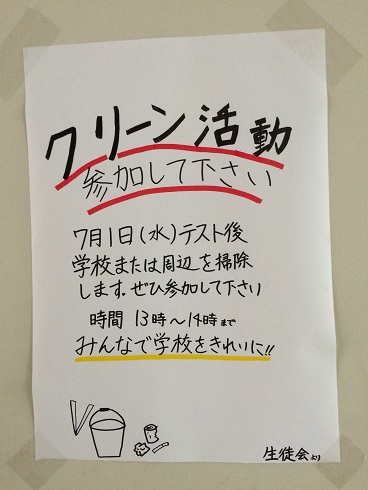 クリーン活動
参加して下さい
7月1日(水)テスト後
学校または周辺を掃除
します。ぜひ参加して下さい
時間 13時～14時まで
みんなで学校をきれいに!!
生徒会より